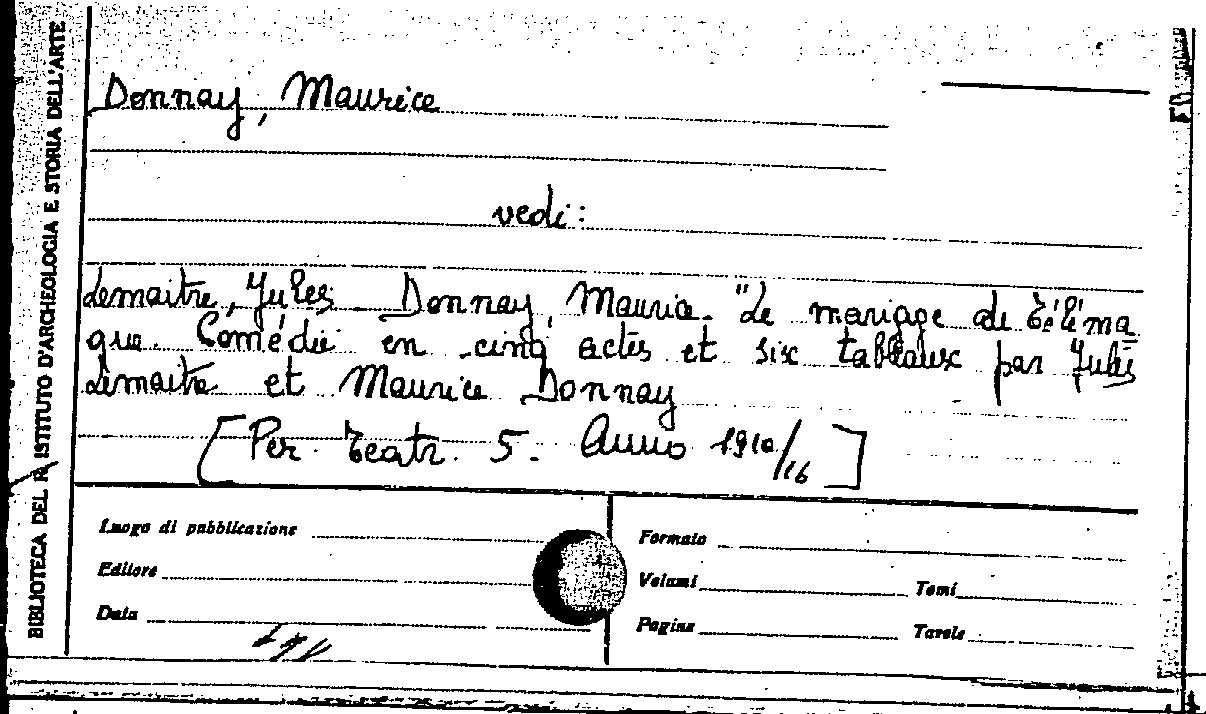 BIBLIOTECA DEL R. ISTITUTO D'ARCHEOLOGIA E STORIA DELL'ARTE
Donnay, Maurice
vedi:
Lemaitre, Jules Donnay, Maurice. "Le mariage de Téléma
que. Comédie en cinq actes et six tableaux par Jules
Lemaitre et Maurice Donnay
[Per. Teatr. 5. Anno 1910/16]
Luogo di pubblicazione
Editore
Data
Formato
Volumi Tomi
Pagine Tavole